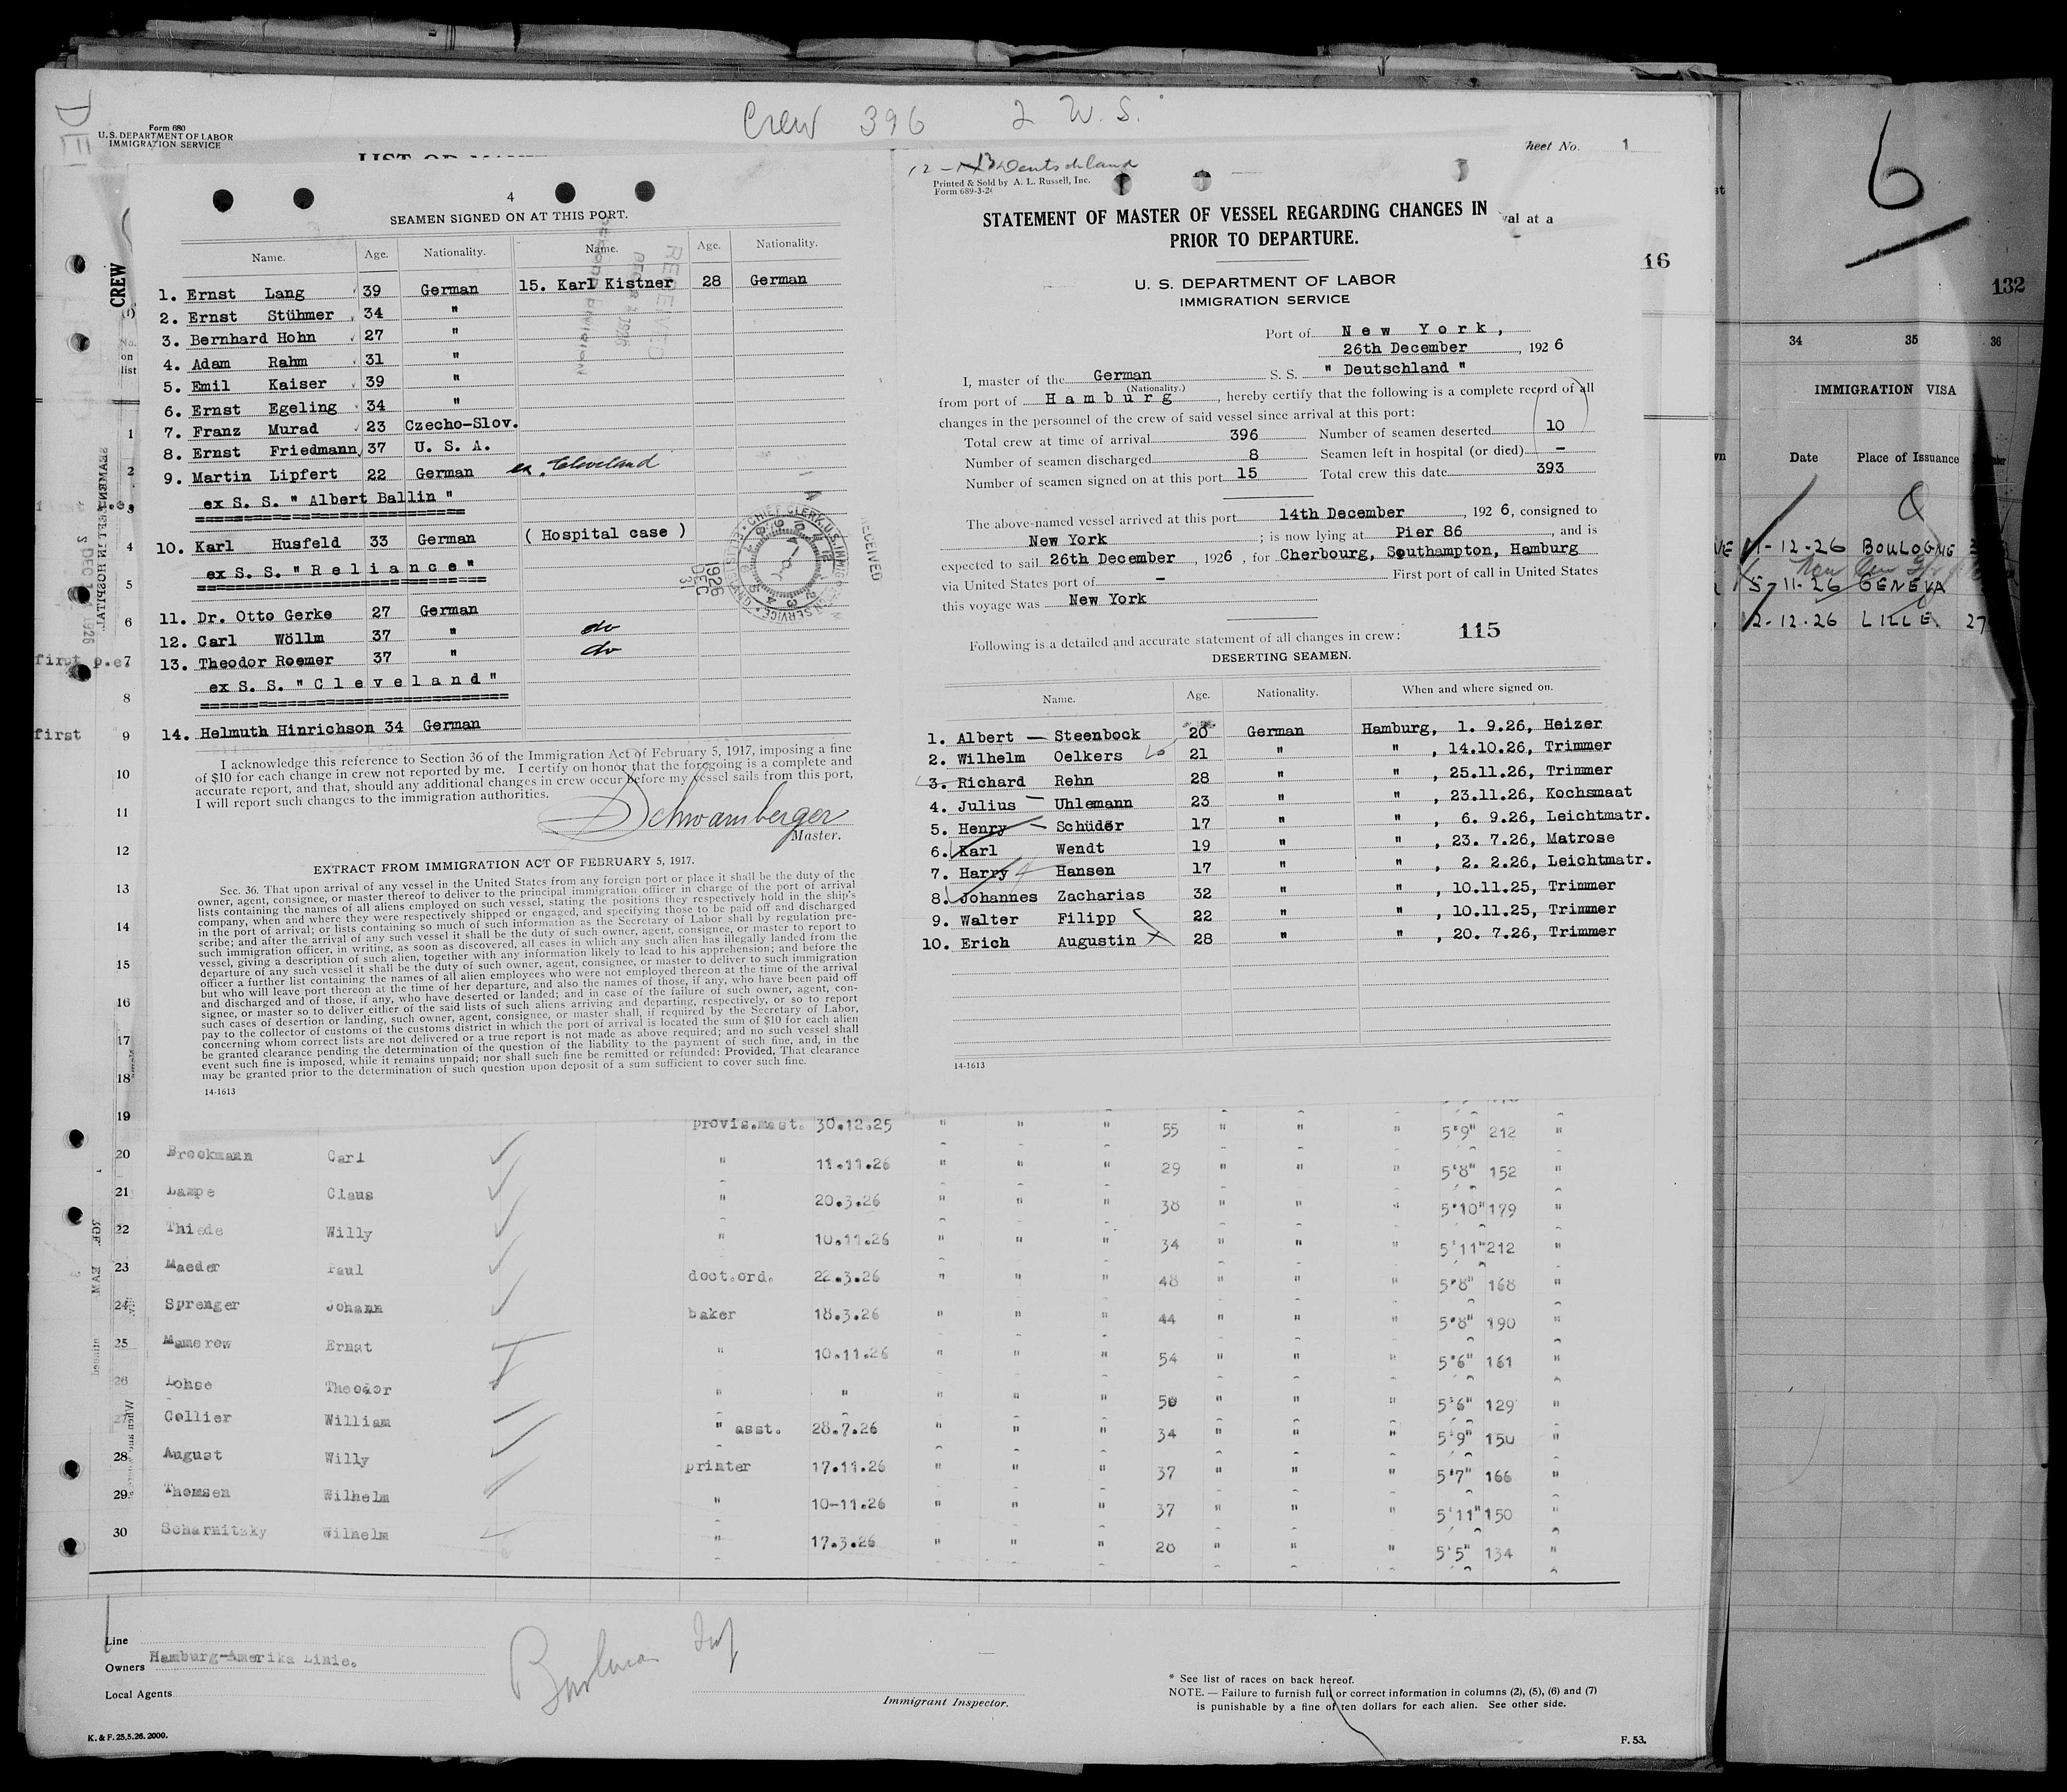 Crew 396 2 W. S.
Form 680
U. S. DEPARTMENT OF LABOR
IMMIGRATION SERVICE
4
SEAMEN SIGNED ON AT THIS PORT.
Name. Age. Nationality. Name. Age. Nationality.
1. Ernst Lang 39 German 15. Karl Kistner 28 German
2. Ernst Stühmer 34 "
3. Bernhard Hohn 27 "
4. Adam Rahm 31 "
5. Emil Kaiser 39 "
6. Ernst Egeling 34 "
7. Franz Murad 23 Czecho-Slov.
8. Ernst Friedmann 37 U. S. A.
9. Martin Lipfert 22 German ex. Cleveland
ex S. S. " Albert Ballin "
10. Karl Husfeld 33 German ( Hospital case )
ex S. S. " R e l i a n c e "
11. Dr. Otto Gerke 27 German
12. Carl Wöllm 37 " do
13. Theodor Roemer 37 " do
ex S. S. " C l e v e l a n d "
14. Helmuth Hinrichson 34 German
I acknowledge this reference to Section 36 of the Immigration Act of February 5, 1917, imposing a fine
of $10 for each change in crew not reported by me. I certify on honor that the foregoing is a complete and
accurate report, and that, should any additional changes in crew occur before my vessel sails from this port,
I will report such changes to the immigration authorities.
Schwamberger
Master.
EXTRACT FROM IMMIGRATION ACT OF FEBRUARY 5, 1917.
Sec. 36. That upon arrival of any vessel in the United States from any foreign port or place it shall be the duty of the
owner, agent, consignee, or master thereof to deliver to the principal immigration officer in charge of the port of arrival
lists containing the names of all aliens employed on such vessel, stating the positions they respectively hold in the ship's
company, when and where they were respectively shipped or engaged, and specifying those to be paid off and discharged
in the port of arrival; or lists containing so much of such information as the Secretary of Labor shall by regulation pre-
scribe; and after the arrival of any such vessel it shall be the duty of such owner, agent, consignee, or master to report to
such immigration officer, in writing, as soon as discovered, all cases in which any such alien has illegally landed from the
vessel, giving a description of such alien, together with any information likely to lead to his apprehension; and before the
departure of any such vessel it shall be the duty of such owner, agent, consignee, or master to deliver to such immigration
officer a further list containing the names of all alien employees who were not employed thereon at the time of the arrival
but who will leave port thereon at the time of her departure, and also the names of those, if any, who have been paid off
and discharged and of those, if any, who have deserted or landed; and in case of the failure of such owner, agent, con-
signee, or master so to deliver either of the said lists of such aliens arriving and departing, respectively, or so to report
such cases of desertion or landing, such owner, agent, consignee, or master shall, if required by the Secretary of Labor,
pay to the collector of customs of the customs district in which the port of arrival is located the sum of $10 for each alien
concerning whom correct lists are not delivered or a true report is not made as above required; and no such vessel shall
be granted clearance pending the determination of the question of the liability to the payment of such fine, and, in the
event such fine is imposed, while it remains unpaid; nor shall such fine be remitted or refunded: Provided, That clearance
may be granted prior to the determination of such question upon deposit of a sum sufficient to cover such fine.
14-1613
heet No. 1
Deutschland
Printed & Sold by A. L. Russell, Inc.
Form 689-3-2
STATEMENT OF MASTER OF VESSEL REGARDING CHANGES IN
PRIOR TO DEPARTURE.
val at a
U. S. DEPARTMENT OF LABOR
IMMIGRATION SERVICE
Port of N e w Y o r k ,
26th December , 192 6
I, master of the German S. S. " Deutschland "
(Nationality.)
from port of H a m b u r g , hereby certify that the following is a complete record of all
changes in the personnel of the crew of said vessel since arrival at this port:
Total crew at time of arrival 396 Number of seamen deserted 10
Number of seamen discharged 8 Seamen left in hospital (or died) —
Number of seamen signed on at this port 15 Total crew this date 393
The above-named vessel arrived at this port 14th December , 192 6, consigned to
New York ; is now lying at Pier 86 , and is
expected to sail 26th December , 1926 , for Cherbourg, Southampton, Hamburg
via United States port of — First port of call in United States
this voyage was New York
Following is a detailed and accurate statement of all changes in crew: 115
DESERTING SEAMEN.
Name. Age. Nationality. When and where signed on.
1. Albert Steenbock 20 German Hamburg, 1. 9.26, Heizer
2. Wilhelm Oelkers 21 " " , 14.10.26, Trimmer
3. Richard Rehn 28 " " , 25.11.26, Trimmer
4. Julius Uhlemann 23 " " , 23.11.26, Kochsmaat
5. Henry Schüder 17 " " , 6. 9.26, Leichtmatr.
6. Karl Wendt 19 " " , 23. 7.26, Matrose
7. Harry Hansen 17 " " , 2. 2.26, Leichtmatr.
8. Johannes Zacharias 32 " " , 10.11.25, Trimmer
9. Walter Filipp 22 " " , 10.11.25, Trimmer
10. Erich Augustin 28 " " , 20. 7.26, Trimmer
14-1613
19 provis.mast. 30.12.25 " " " 55 " " " 5'9" 212 "
20 Brockmann Carl " 11.11.26 " " " 29 " " " 5'8" 152 "
21 Lampe Claus " 20.3.26 " " " 38 " " " 5'10" 179 "
22 Thiede Willy " 10.11.26 " " " 34 " " " 5'11" 212 "
23 Maeder Paul doct.ord. 22.3.26 " " " 48 " " " 5'8" 168 "
24 Sprenger Johann baker 18.3.26 " " " 44 " " " 5'8" 190 "
25 Mamerow Ernst " 10.11.26 " " " 54 " " " 5'6" 161 "
26 Lohse Theodor " " " " " 50 " " " 5'6" 129 "
27 Collier William " asst. 28.7.26 " " " 34 " " " 5'9" 150 "
28 August Willy printer 17.11.26 " " " 37 " " " 5'7" 166 "
29 Thomsen Wilhelm " 10-11.26 " " " 37 " " " 5'11" 150 "
30 Scharnitzky Wilhelm " 17.3.26 " " " 28 " " " 5'5" 134 "
Line
Owners Hamburg-Amerika Linie.
Local Agents
Immigrant Inspector.
* See list of races on back hereof.
NOTE. — Failure to furnish full or correct information in columns (2), (5), (6) and (7)
is punishable by a fine of ten dollars for each alien. See other side.
K. & F. 25.5.26. 2000.
F. 53.
CREW
on
list
1
2
3
4
5
6
first p.e. 7
8
first 9
10
11
12
13
14
15
16
17
18
RECEIVED
DEC 1926
1926
DEC
31
RECEIVED
16
6
132
34 35 36
IMMIGRATION VISA
Date Place of Issuance
11-12-26 BOULOGNE
5-11-26 GENEVA
2-12-26 LILLE. 27